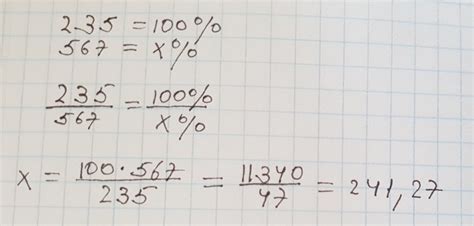 235 = 100%
567 = x%
235/567 = 100%/x%
x = 100·567/235 = 11340/47 = 241,27